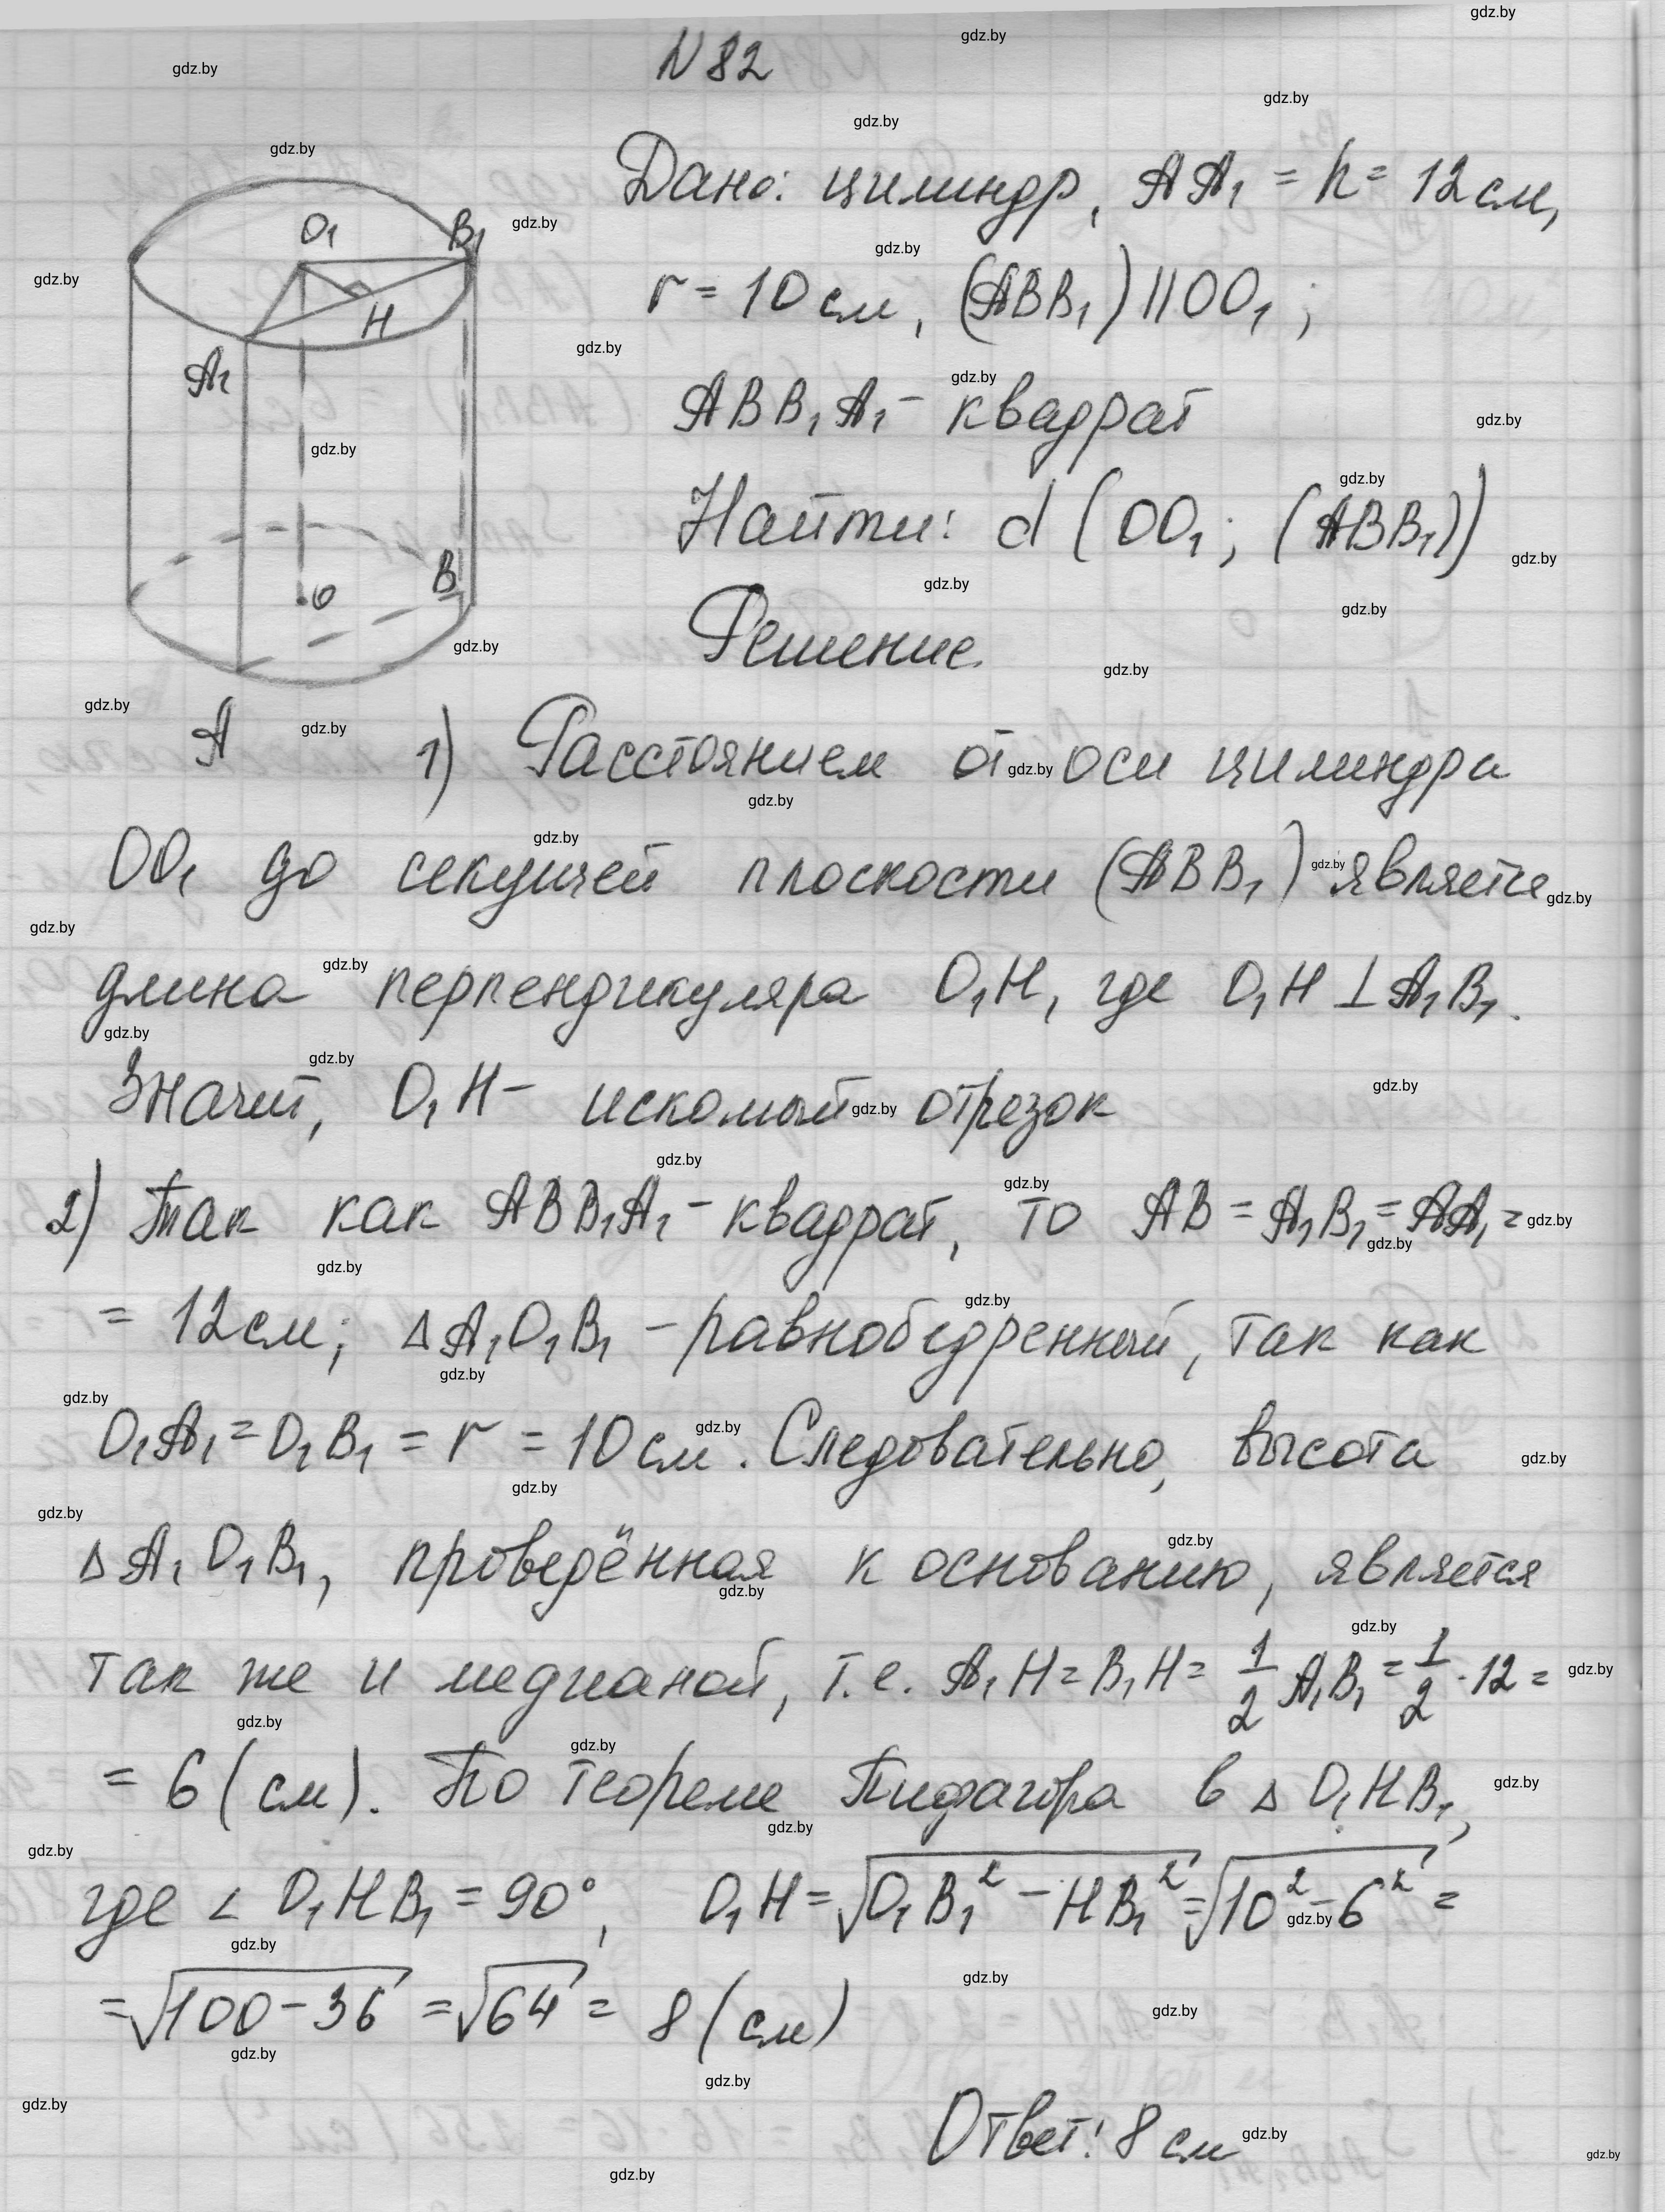 N 82
Дано: цилиндр, AA₁ = h = 12 см,
r = 10 см, (ABB₁) || OO₁;
ABB₁A₁ - квадрат
Найти: d (OO₁; (ABB₁))
Решение.
O₁ B₁
H
A₁
O B
A
1) Расстоянием от оси цилиндра
OO₁ до секущей плоскости (ABB₁) является
длина перпендикуляра O₁H, где O₁H ⊥ A₁B₁.
Значит, O₁H - искомый отрезок
2) Так как ABB₁A₁ - квадрат, то AB = A₁B₁ = AA₁ =
= 12 см; Δ A₁O₁B₁ - равнобедренный, так как
O₁A₁ = O₁B₁ = r = 10 см. Следовательно, высота
Δ A₁O₁B₁, проведённая к основанию, является
так же и медианой, т.е. A₁H = B₁H = 1/2 A₁B₁ = 1/2 · 12 =
= 6 (см). По теореме Пифагора в Δ O₁HB₁,
где ∠ O₁HB₁ = 90°, O₁H = √(O₁B₁² - HB₁²) = √(10² - 6²) =
= √(100 - 36) = √64 = 8 (см)
Ответ: 8 см
gdz.by